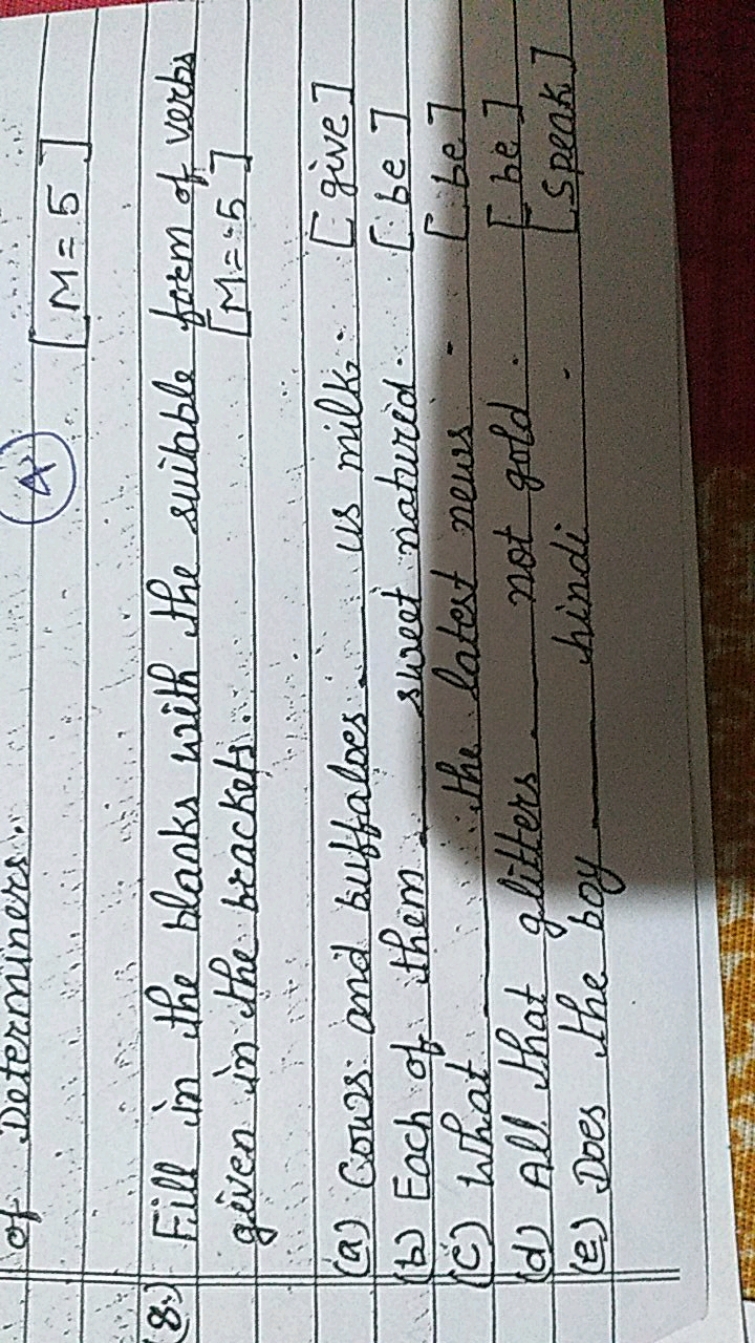 of Determiners.
[M = 5]
A
(8.) Fill in the blanks with the suitable form of verbs
given in the brackets. [M = 5]
(a) Cows and buffaloes ___ us milk. [give]
(b) Each of them ___ sweet natured. [be]
(c) What ___ the latest news. [be]
(d) All that glitters ___ not gold. [be]
(e) Does the boy ___ hindi. [speak]